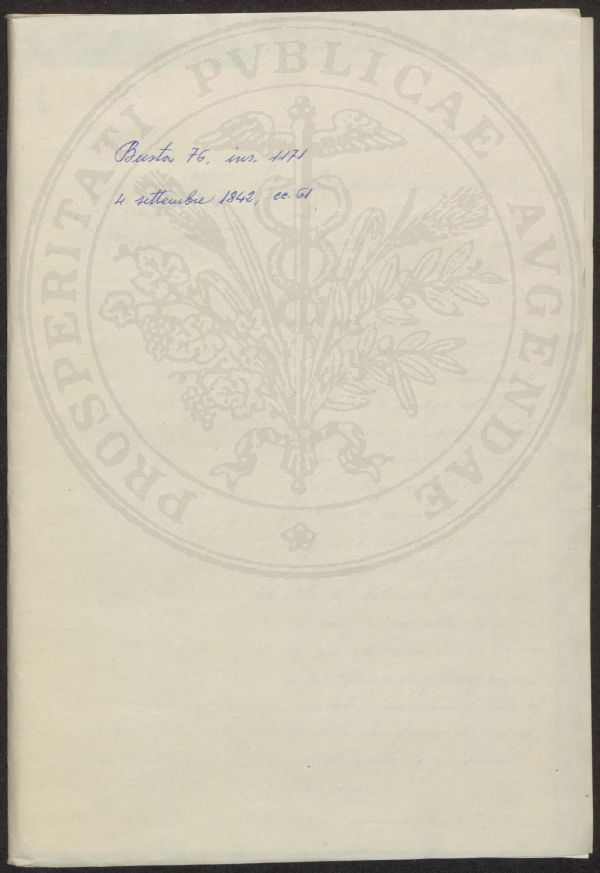 PROSPERITATI PVBLICAE AVGENDAE
Busta 76, ins. 1171
4 settembre 1842, cc. 61